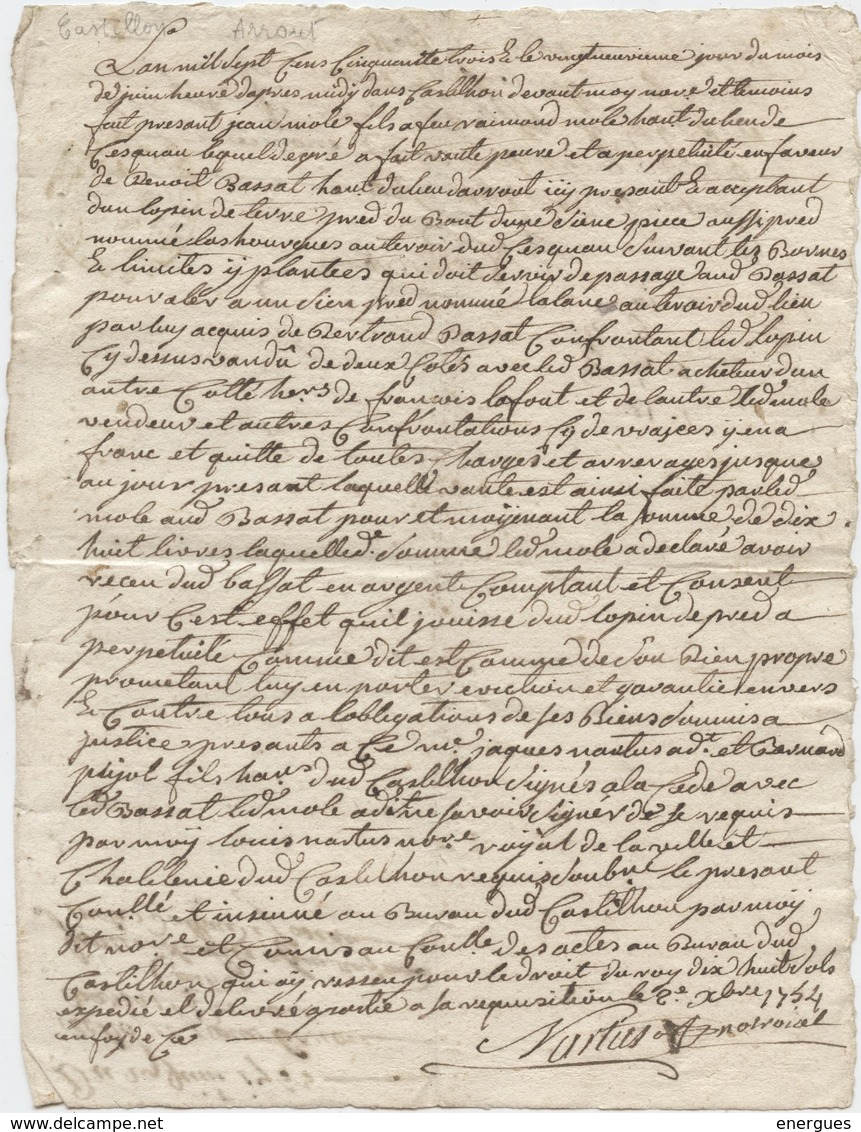 Castillon Arrout
L'an mil sept cens cinquante trois et le vingtneuvieme jour du mois
de juin heure d'apres midy dans Castilhon devant moy nore et temoins
fut presant jean mole fils a feu raimond mole hant. du lieu de
Cesquau lequel de gré a fait vante peure et a perpetuité en faveur
de Benoit Bassat hant. du lieu darrout icy presant et acceptant
dun lopin de terre pred du Bout dune siene piece aussi pred
nommé las hourques au teroir dud Cesquau suivant les Bornes
et limites ÿ plantees qui doit servir de passage aud Bassat
pour aler a un sien pred nommé lalane au teroir dud lieu
par luy acquis de Bertrand Bassat Confrontant led lopin
Cy dessus vandû de deux Cotés avec led Bassat acheteur dun
autre Cotté hers de francois lafont et de lautre led mole
vendeur et autres Confrontations Cy de vrajees y en a
franc et quitte de toutes charges et arrerages jusque
au jour presant laquelle vante est ainsi faite par led
mole aud Bassat pour et moyenant la somme de dix
huit livres laquelle de. somme led mole a declaré avoir
receu dud bassat en argent Comptant et Consent
pour C'est effet quil jouisse dud lopin de pred a
perpetuité Comme dit est Comme de son Bien propre
prometant luy en porter eviction et garantie envers
et Contre tous a lobligations de ses Biens soumis a
justice presants a Ce me. jaques nartus adt. et Bernard
pujol fils hans dud Castilhon signés a la Cede avec
led Bassat led mole a dit ne savoir signer de Ce requis
par moÿ louis nartus nore roÿal de la ville et
Chatlenie dud Castilhon requis soubné le presant
Conllé et insinué au Bureau dud Castilhon par moÿ
dit nore et Comis au Conlle des actes au Bureau dud
Castilhon qui aÿ ressu pour le droit du roy dix huit sols
expedié et delivré a partie a sa requisition le 2e Xbre 1754
en foy de Ce
Nartus no roial
energues
www.delcampe.net